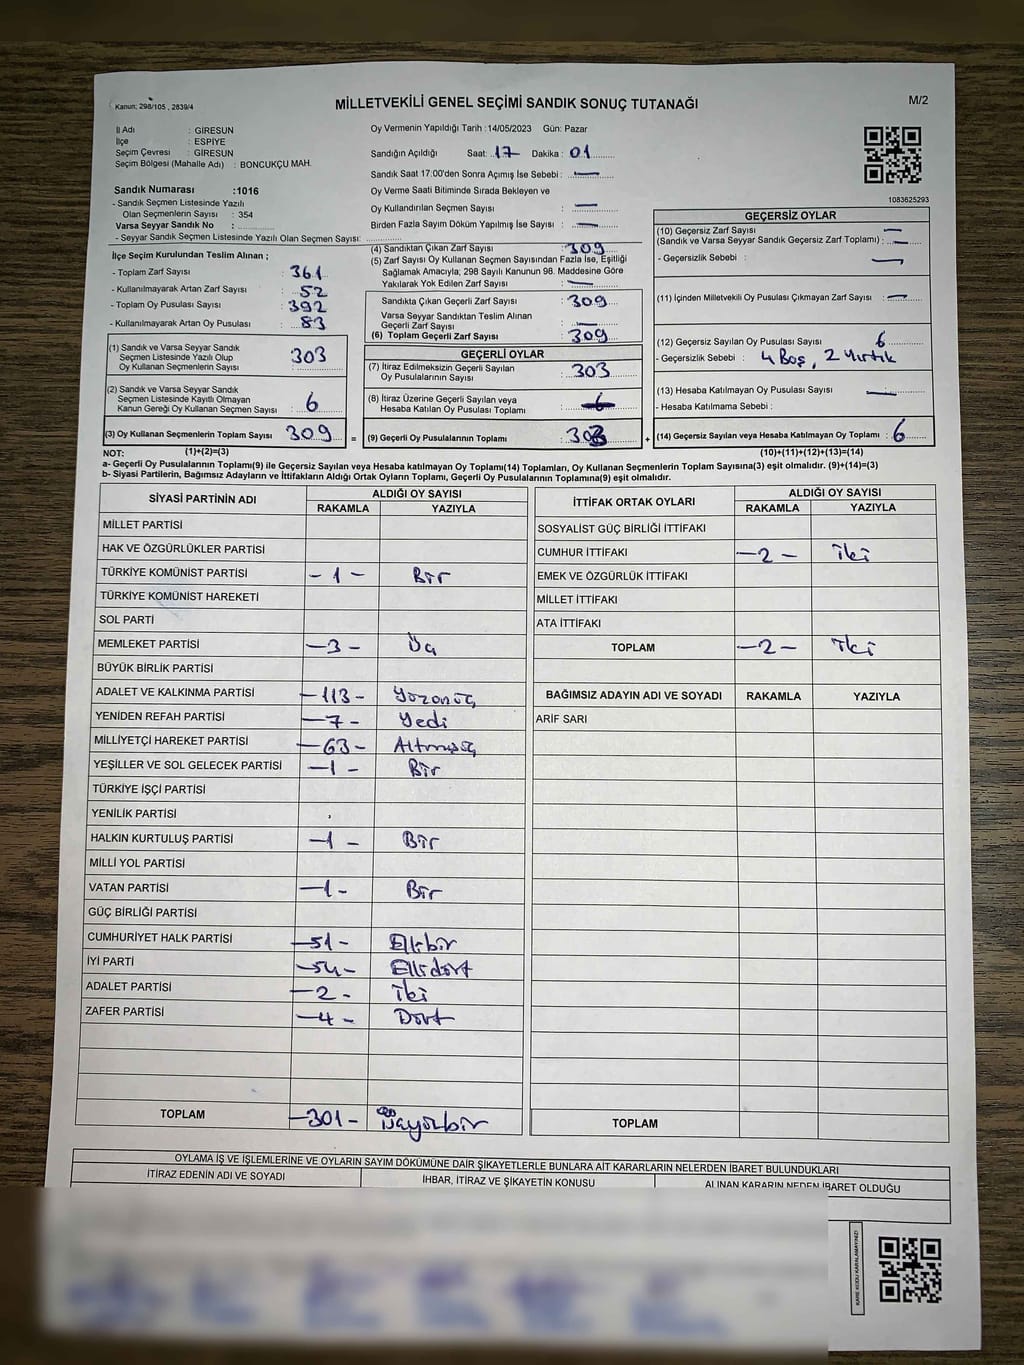 Kanun; 298/105 , 2839/4
MİLLETVEKİLİ GENEL SEÇİMİ SANDIK SONUÇ TUTANAĞI
M/2
İl Adı : GİRESUN
İlçe : ESPİYE
Seçim Çevresi : GİRESUN
Seçim Bölgesi (Mahalle Adı) : BONCUKÇU MAH.
Sandık Numarası :1016
- Sandık Seçmen Listesinde Yazılı
Olan Seçmenlerin Sayısı : 354
Varsa Seyyar Sandık No :
- Seyyar Sandık Seçmen Listesinde Yazılı Olan Seçmen Sayısı:
Oy Vermenin Yapıldığı Tarih :14/05/2023 Gün: Pazar
Sandığın Açıldığı Saat: 17 Dakika : 01
Sandık Saat 17:00'den Sonra Açımış İse Sebebi : —
Oy Verme Saati Bitiminde Sırada Bekleyen ve
Oy Kullandırılan Seçmen Sayısı : —
Birden Fazla Sayım Döküm Yapılmış İse Sayısı : —
1083625293
İlçe Seçim Kurulundan Teslim Alınan ;
- Toplam Zarf Sayısı : 361
- Kullanılmayarak Artan Zarf Sayısı : 52
- Toplam Oy Pusulası Sayısı : 392
- Kullanılmayarak Artan Oy Pusulası : 83
(1) Sandık ve Varsa Seyyar Sandık
Seçmen Listesinde Yazılı Olup
Oy Kullanan Seçmenlerin Sayısı : 303
(2) Sandık ve Varsa Seyyar Sandık
Seçmen Listesinde Kayıtlı Olmayan
Kanun Gereği Oy Kullanan Seçmen Sayısı : 6
(3) Oy Kullanan Seçmenlerin Toplam Sayısı : 309
(4) Sandıktan Çıkan Zarf Sayısı : 309
(5) Zarf Sayısı Oy Kullanan Seçmen Sayısından Fazla İse, Eşitliği
Sağlamak Amacıyla; 298 Sayılı Kanunun 98. Maddesine Göre
Yakılarak Yok Edilen Zarf Sayısı : —
Sandıkta Çıkan Geçerli Zarf Sayısı : 309
Varsa Seyyar Sandıktan Teslim Alınan
Geçerli Zarf Sayısı : —
(6) Toplam Geçerli Zarf Sayısı : 309
GEÇERLİ OYLAR
(7) İtiraz Edilmeksizin Geçerli Sayılan
Oy Pusulalarının Sayısı : 303
(8) İtiraz Üzerine Geçerli Sayılan veya
Hesaba Katılan Oy Pusulası Toplamı : —
= (9) Geçerli Oy Pusulalarının Toplamı : 303
GEÇERSİZ OYLAR
(10) Geçersiz Zarf Sayısı : —
(Sandık ve Varsa Seyyar Sandık Geçersiz Zarf Toplamı) : —
- Geçersizlik Sebebi : —
(11) İçinden Milletvekili Oy Pusulası Çıkmayan Zarf Sayısı : —
(12) Geçersiz Sayılan Oy Pusulası Sayısı : 6
- Geçersizlik Sebebi : 4 Boş, 2 Yırtık
(13) Hesaba Katılmayan Oy Pusulası Sayısı : —
- Hesaba Katılmama Sebebi :
+ (14) Geçersiz Sayılan veya Hesaba Katılmayan Oy Toplamı : 6
NOT: (1)+(2)=(3) (10)+(11)+(12)+(13)=(14)
a- Geçerli Oy Pusulalarının Toplamı(9) ile Geçersiz Sayılan veya Hesaba katılmayan Oy Toplamı(14) Toplamları, Oy Kullanan Seçmenlerin Toplam Sayısına(3) eşit olmalıdır. (9)+(14)=(3)
b- Siyasi Partilerin, Bağımsız Adayların ve İttifakların Aldığı Ortak Oyların Toplamı, Geçerli Oy Pusulalarının Toplamına(9) eşit olmalıdır.
SİYASİ PARTİNİN ADI ALDIĞI OY SAYISI
RAKAMLA YAZIYLA
MİLLET PARTİSİ
HAK VE ÖZGÜRLÜKLER PARTİSİ
TÜRKİYE KOMÜNİST PARTİSİ - 1 - Bir
TÜRKİYE KOMÜNİST HAREKETİ
SOL PARTİ
MEMLEKET PARTİSİ - 3 - Üç
BÜYÜK BİRLİK PARTİSİ
ADALET VE KALKINMA PARTİSİ - 113 - Yüzonüç
YENİDEN REFAH PARTİSİ - 7 - Yedi
MİLLİYETÇİ HAREKET PARTİSİ - 63 - Altmışüç
YEŞİLLER VE SOL GELECEK PARTİSİ - 1 - Bir
TÜRKİYE İŞÇİ PARTİSİ
YENİLİK PARTİSİ
HALKIN KURTULUŞ PARTİSİ - 1 - Bir
MİLLİ YOL PARTİSİ
VATAN PARTİSİ - 1 - Bir
GÜÇ BİRLİĞİ PARTİSİ
CUMHURİYET HALK PARTİSİ - 51 - Ellibir
İYİ PARTİ - 54 - Ellidört
ADALET PARTİSİ - 2 - İki
ZAFER PARTİSİ - 4 - Dört
TOPLAM - 301 -
İTTİFAK ORTAK OYLARI ALDIĞI OY SAYISI
RAKAMLA YAZIYLA
SOSYALİST GÜÇ BİRLİĞİ İTTİFAKI
CUMHUR İTTİFAKI - 2 - İki
EMEK VE ÖZGÜRLÜK İTTİFAKI
MİLLET İTTİFAKI
ATA İTTİFAKI
TOPLAM - 2 - İki
BAĞIMSIZ ADAYIN ADI VE SOYADI RAKAMLA YAZIYLA
ARİF SARI
TOPLAM
OYLAMA İŞ VE İŞLEMLERİNE VE OYLARIN SAYIM DÖKÜMÜNE DAİR ŞİKAYETLERLE BUNLARA AİT KARARLARIN NELERDEN İBARET BULUNDUKLARI
İTİRAZ EDENİN ADI VE SOYADI İHBAR, İTİRAZ VE ŞİKAYETİN KONUSU ALINAN KARARIN NEDEN İBARET OLDUĞU
KARE KODU KARALAMAYINIZ!